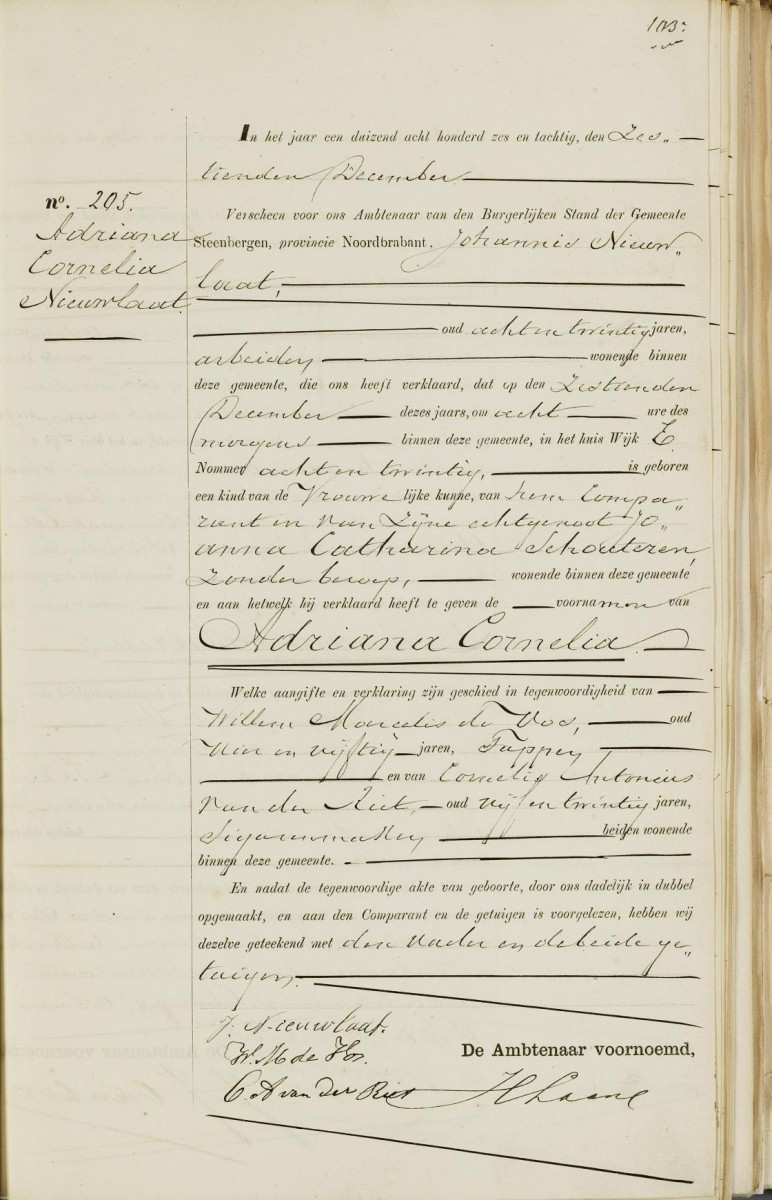 103.
In het jaar een duizend acht honderd zes en tachtig, den Zes„
tienden December
n°. 205.
Adriana
Cornelia
Nieuwlaat.
Verscheen voor ons Ambtenaar van den Burgerlijken Stand der Gemeente
Steenbergen, provincie Noordbrabant, Johannis Nieuw„
laat,
oud acht en twintig jaren,
arbeider wonende binnen
deze gemeente, die ons heeft verklaard, dat op den Zestienden
December dezes jaars, om acht ure des
morgens binnen deze gemeente, in het huis Wijk E.
Nommer acht en twintig, is geboren
een kind van de Vrouwe lijke kunne, van hem Compa„
rant en van Zijne echtgenoot Jo„
anna Catharina Schouteren,
Zonder beroep, wonende binnen deze gemeente
en aan hetwelk hij verklaard heeft te geven de voornamen van
Adriana Cornelia.
Welke aangifte en verklaring zijn geschied in tegenwoordigheid van
Willem Marcelis de Vos, oud
Vier en vijftig jaren, Tapper,
en van Cornelis Antonius
Van der Riet, oud vijf en twintig jaren,
Sigarenmaker beiden wonende
binnen deze gemeente.
En nadat de tegenwoordige akte van geboorte, door ons dadelijk in dubbel
opgemaakt, en aan den Comparant en de getuigen is voorgelezen, hebben wij
dezelve geteekend met den Vader en de beide ge„
tuigen.
J. Nieuwlaat.
W. M de Vos.
C. A van der Riet
De Ambtenaar voornoemd,